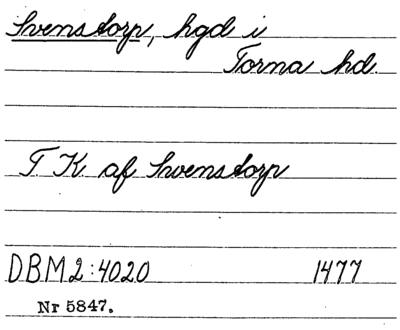 Svenstorp, hgd i
Torna hd.
T K af Swenstorp
DBM2:4020 1477
Nr 5847.